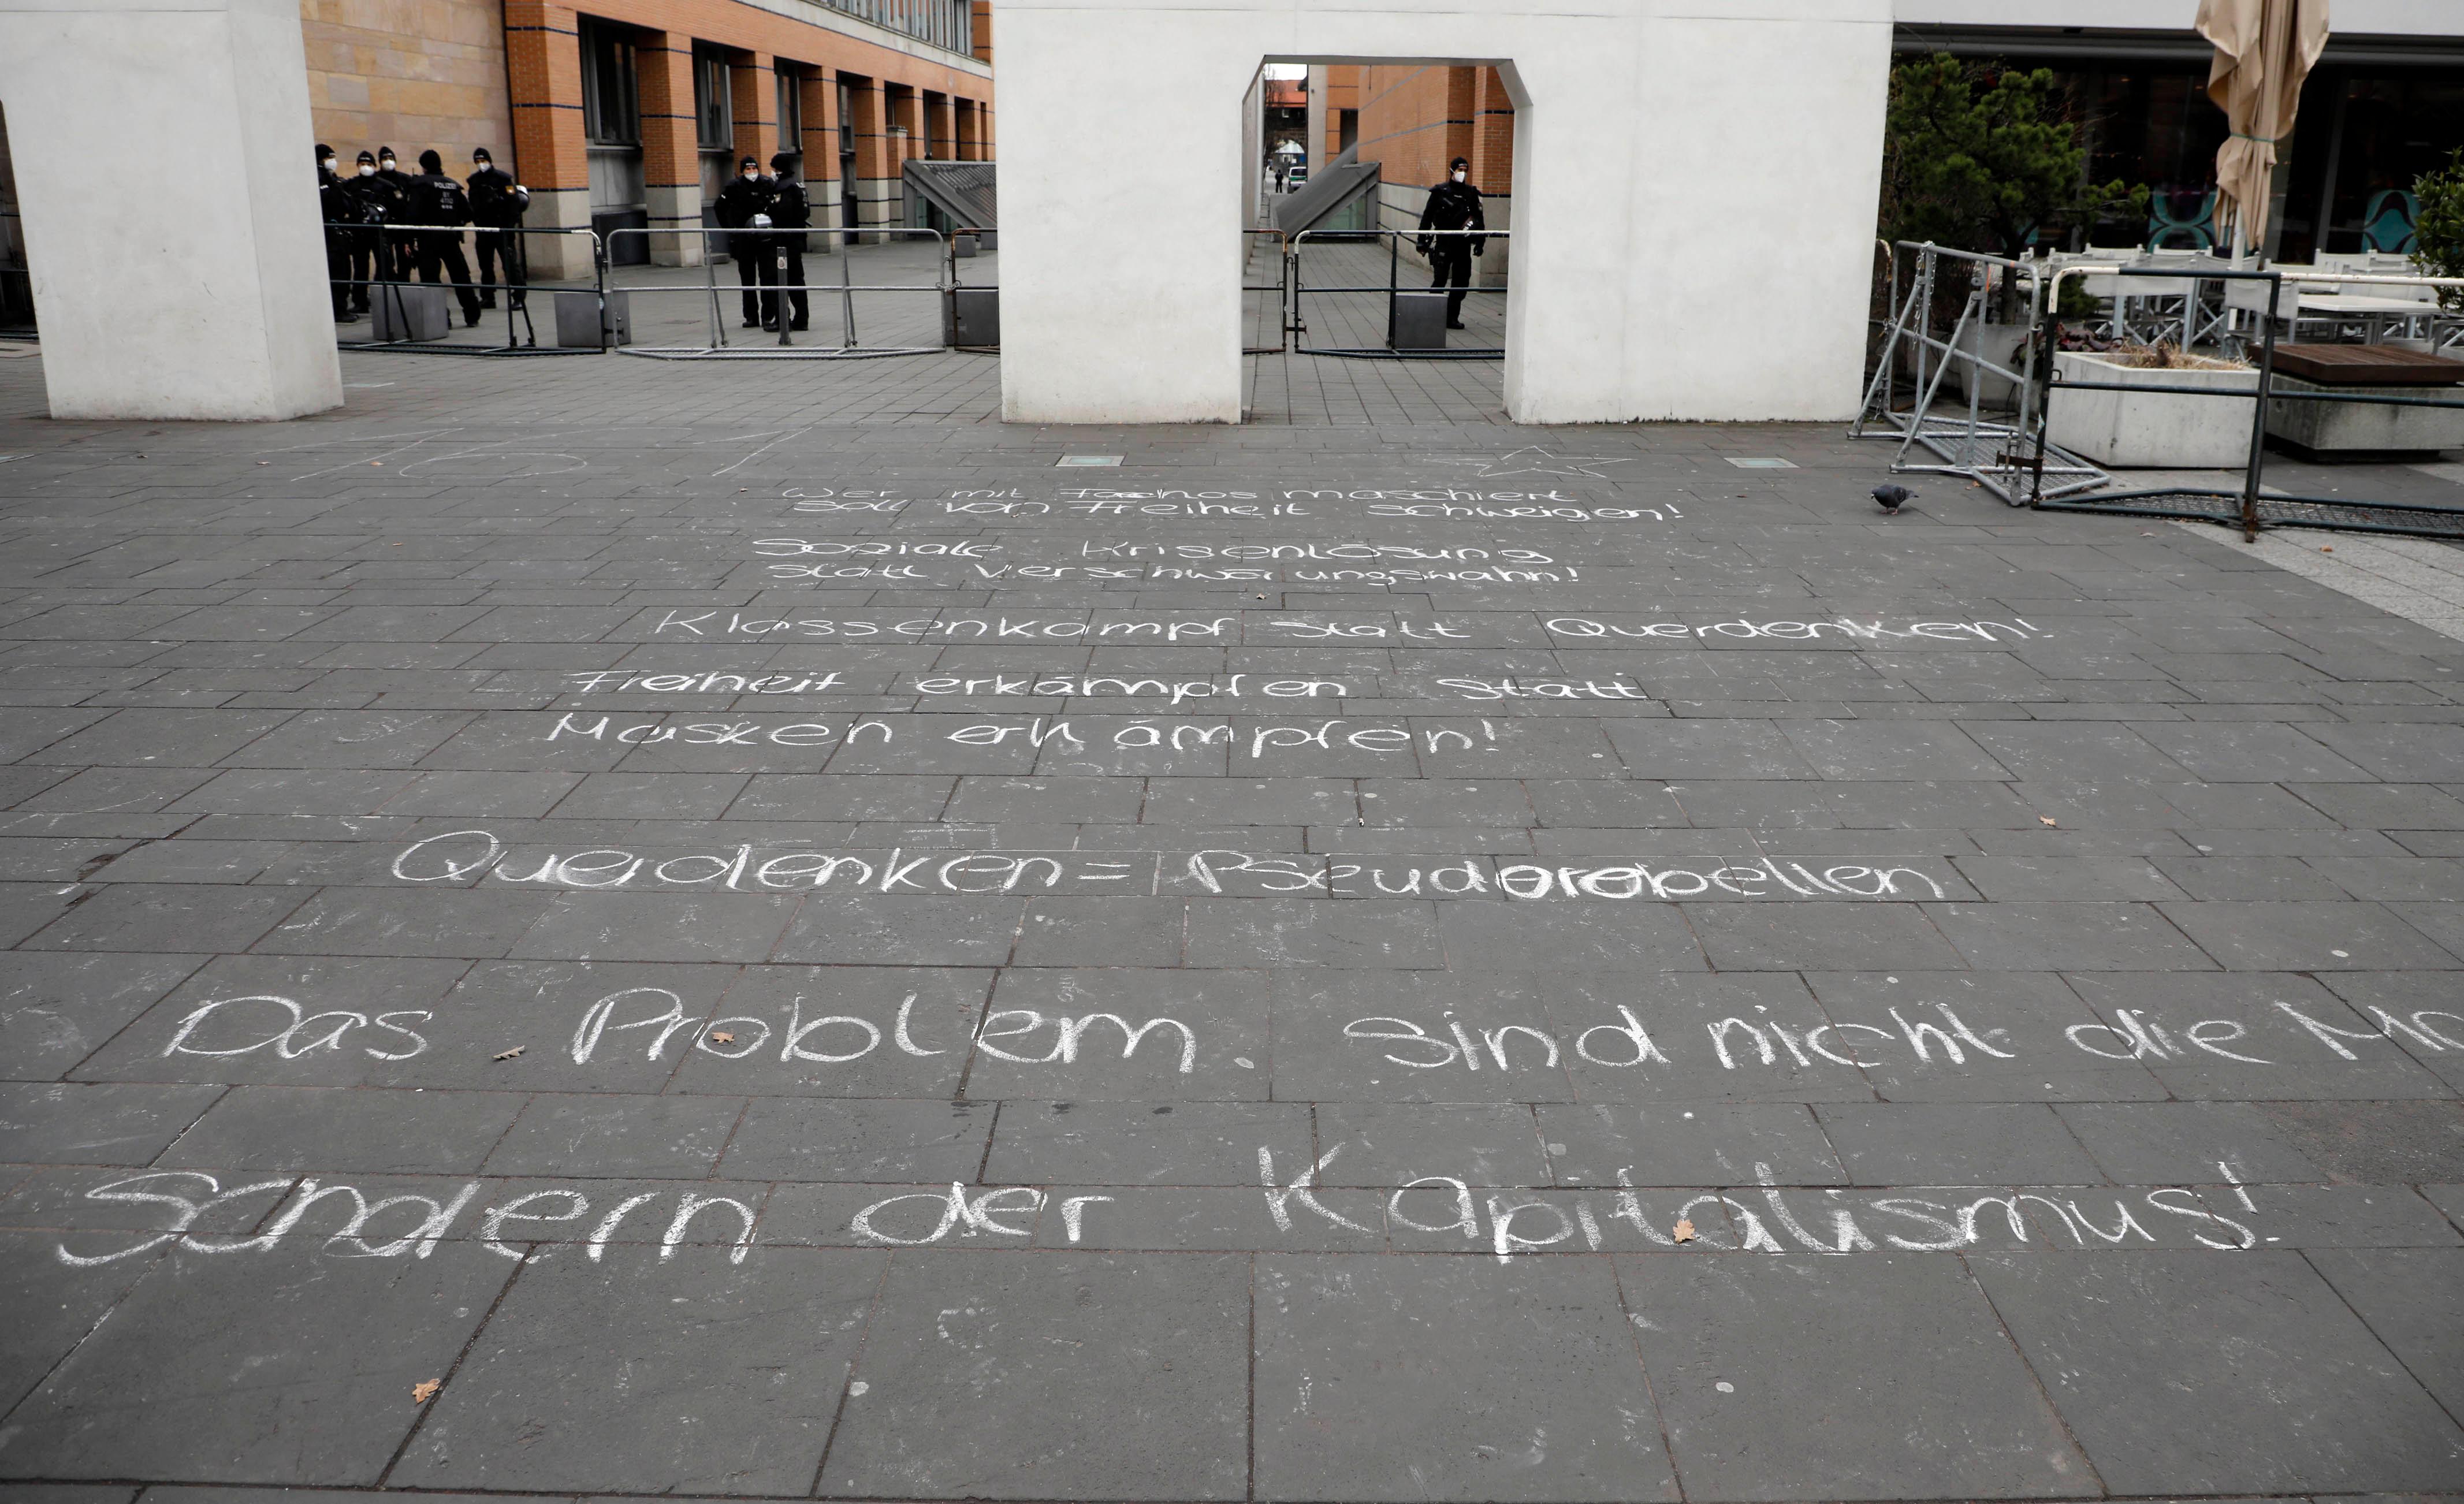 POLIZEI
Wer mit Faschos maschiert
Soll von Freiheit schweigen!
Soziale Krisenlösung
statt Verschwörungswahn!
Klassenkampf statt Querdenken!
Freiheit erkämpfen statt
Masken erkämpfen!
Querdenken = Pseudorebellen
Das Problem sind nicht die Ma
Sondern der Kapitalismus!